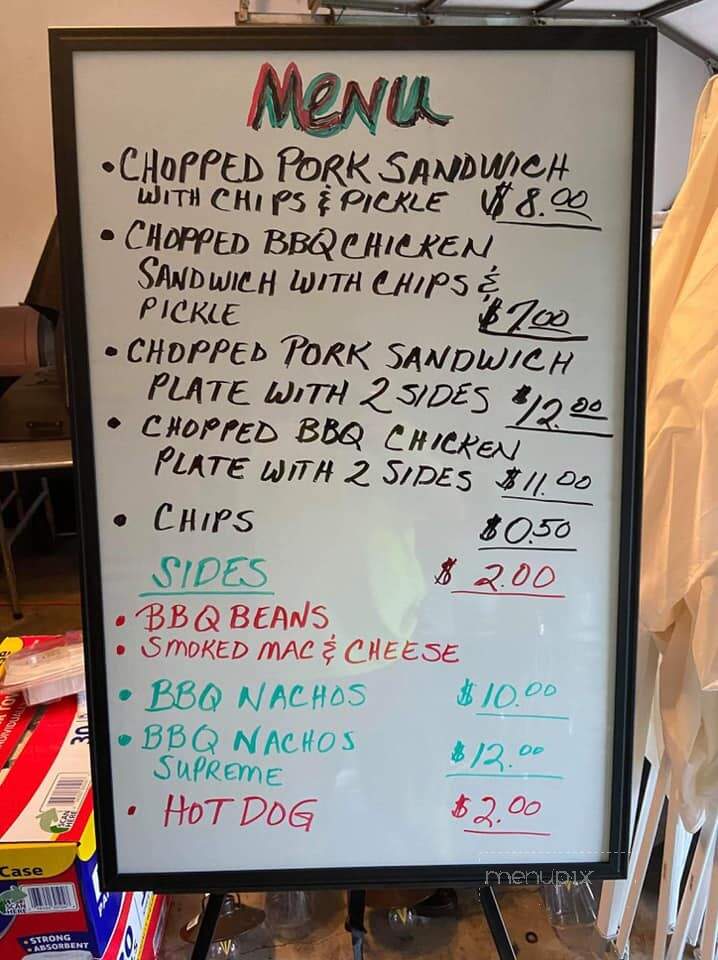 MENU
• CHOPPED PORK SANDWICH
WITH CHIPS & PICKLE $8.00
• CHOPPED BBQ CHICKEN
SANDWICH WITH CHIPS &
PICKLE $7.00
• CHOPPED PORK SANDWICH
PLATE WITH 2 SIDES $12.00
• CHOPPED BBQ CHICKEN
PLATE WITH 2 SIDES $11.00
• CHIPS $0.50
SIDES $ 2.00
• BBQ BEANS
• SMOKED MAC & CHEESE
• BBQ NACHOS $10.00
• BBQ NACHOS
SUPREME $12.00
• HOT DOG $2.00
menupix
SCAN HERE
Case
SCAN HERE
• STRONG
• ABSORBENT